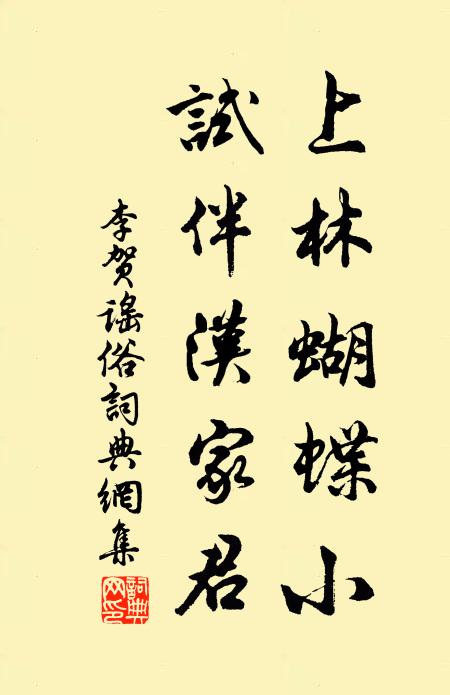 上林蝴蝶小
試伴漢家君
李賀謠俗詞典網集
詞典
网印